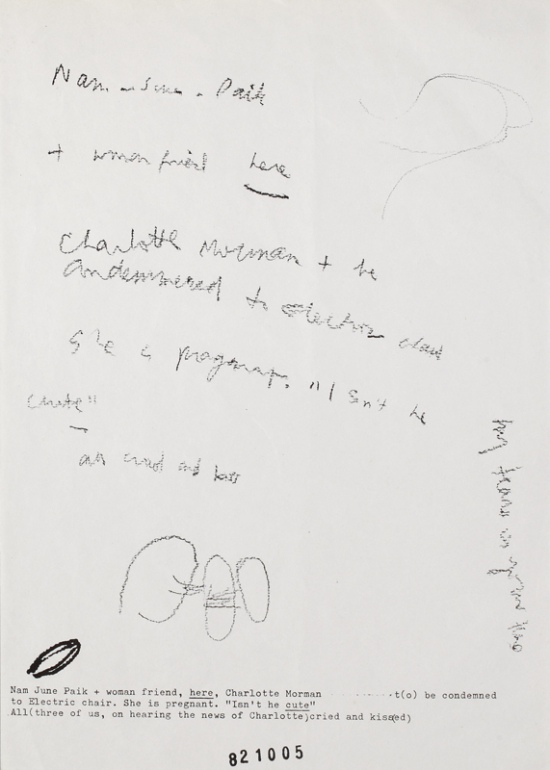 Nam June Paik
+ woman friend here
Charlotte Morman + be
condemmered to electric chair
She is pragnant. "Isn't he
chute"
all cried and kiss
Nam June Paik + woman friend, here, Charlotte Morman ········t(o) be condemned
to Electric chair. She is pregnant. "Isn't he cute"
All(three of us, on hearing the news of Charlotte)cried and kiss(ed)
821005